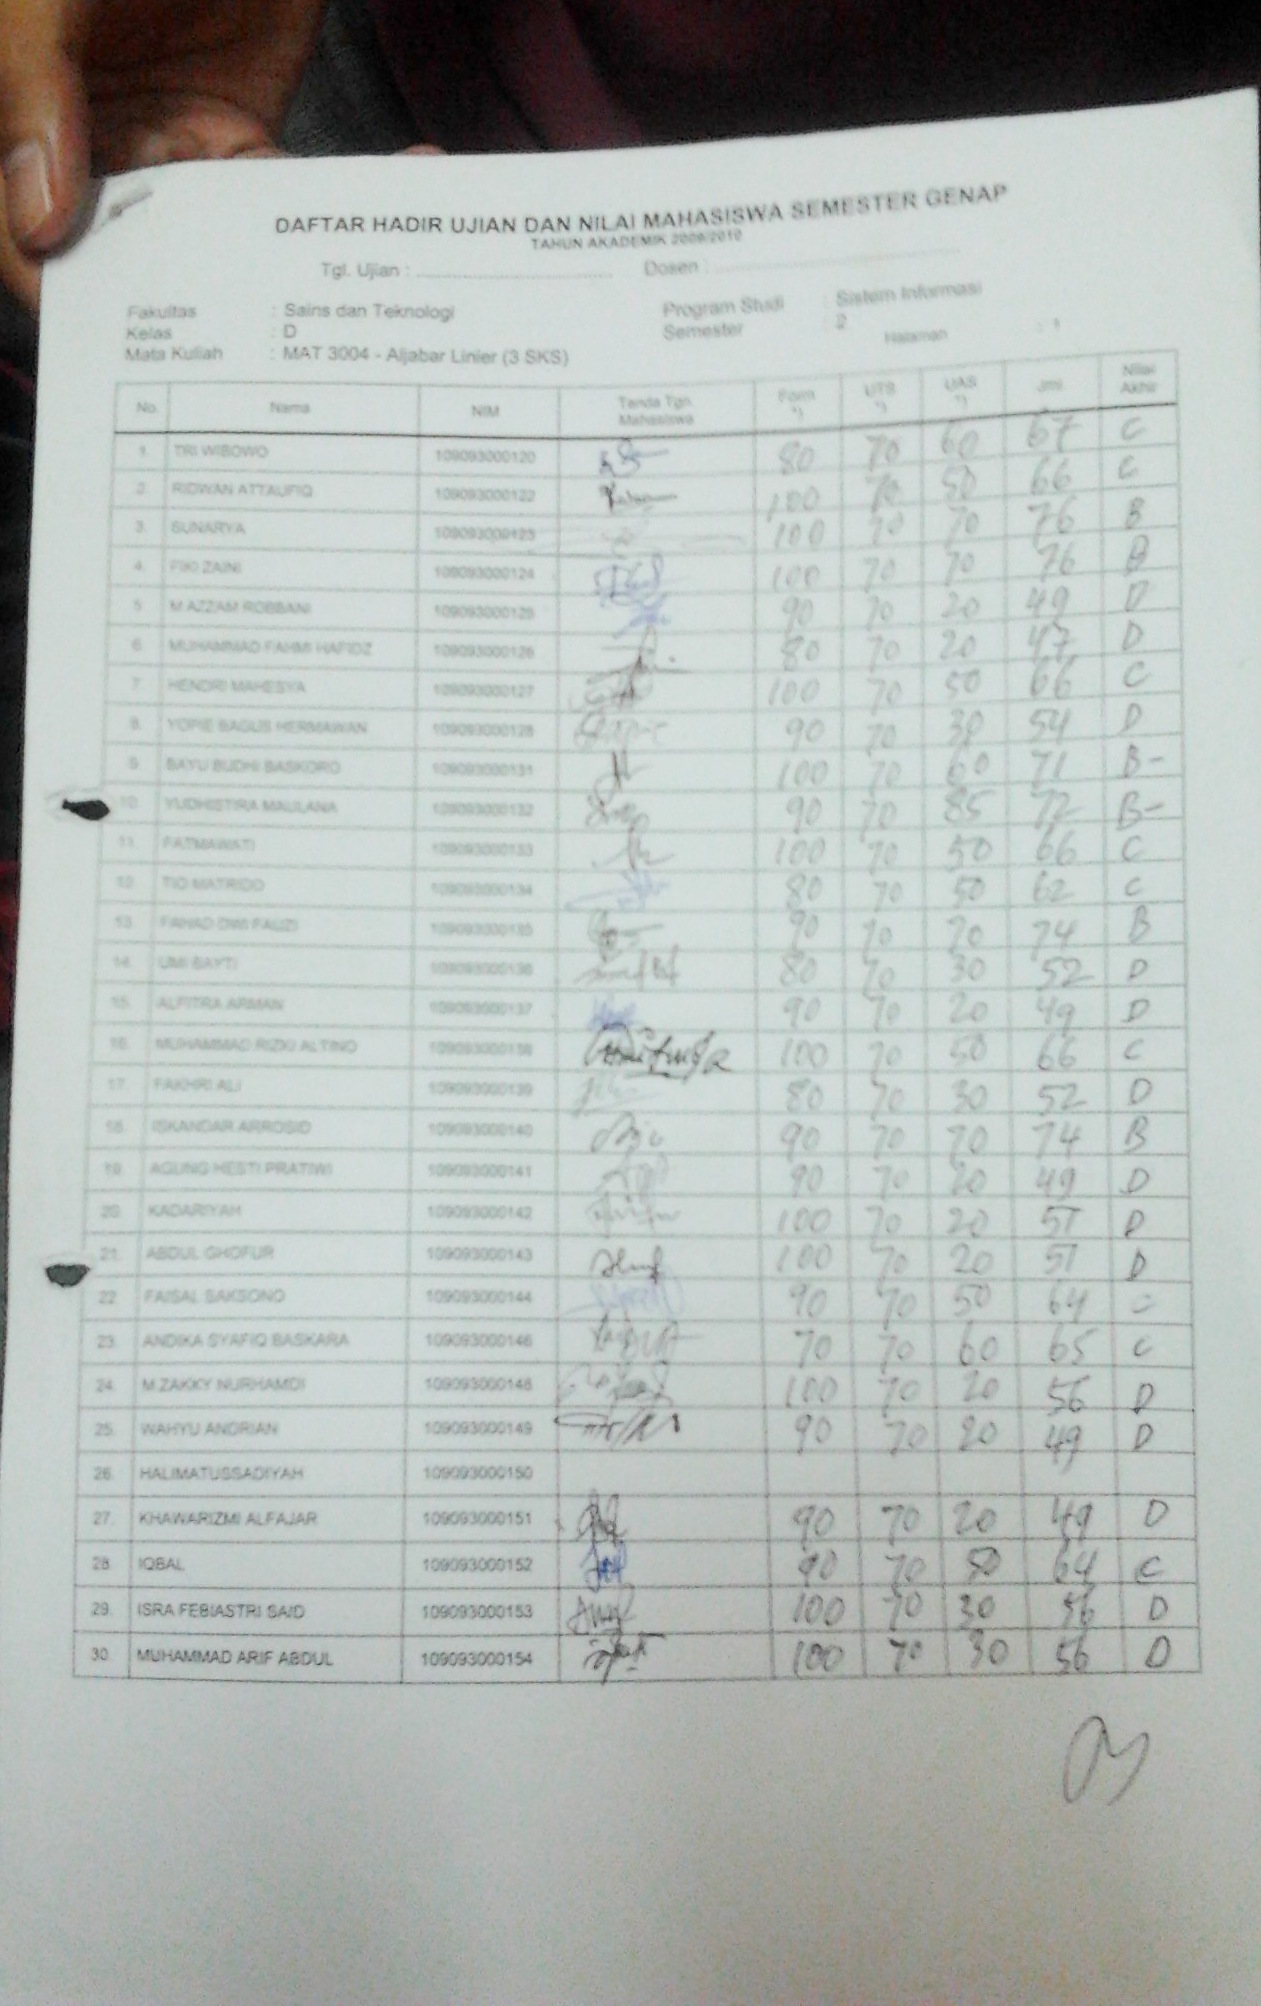 DAFTAR HADIR UJIAN DAN NILAI MAHASISWA SEMESTER GENAP
TAHUN AKADEMIK 2009/2010
Tgl. Ujian : Dosen :
Fakultas : Sains dan Teknologi Program Studi : Sistem Informasi
Kelas : D Semester : 2
Mata Kuliah : MAT 3004 - Aljabar Linier (3 SKS) Halaman : 1
No. Nama NIM Tanda Tgn. Mahasiswa Form *) UTS *) UAS *) Jml. Nilai Akhir
1. TRI WIBOWO 109093000120 80 70 60 67 C
2. RIDWAN ATTAUFIQ 109093000122 100 70 50 66 C
3. SUNARYA 109093000123 100 70 70 76 B
4. FIKI ZAINI 109093000124 100 70 70 76 B
5. M AZZAM ROBBANI 109093000125 90 70 20 49 D
6. MUHAMMAD FAHMI HAFIDZ 109093000126 80 70 20 47 D
7. HENDRI MAHESYA 109093000127 100 70 50 66 C
8. YOPIE BAGUS HERMAWAN 109093000128 90 70 30 54 D
9. BAYU BUDHI BASKORO 109093000131 100 70 60 71 B-
10. YUDHISTIRA MAULANA 109093000132 90 70 85 72 B-
11. FATMAWATI 109093000133 100 70 50 66 C
12. TIO MATRIDO 109093000134 80 70 50 62 C
13. FAHAD DWI FAUZI 109093000135 90 70 70 74 B
14. UMI BAYTI 109093000136 80 70 30 52 D
15. ALFITRA ARMAN 109093000137 90 70 20 49 D
16. MUHAMMAD RIZKI ALTINO 109093000138 100 70 50 66 C
17. FAKHRI ALI 109093000139 80 70 30 52 D
18. ISKANDAR ARROSID 109093000140 90 70 70 74 B
19. AGUNG HESTI PRATIWI 109093000141 90 70 20 49 D
20. KADARIYAH 109093000142 100 70 20 51 D
21. ABDUL GHOFUR 109093000143 100 70 20 51 D
22. FAISAL SAKSONO 109093000144 90 70 50 64 C
23. ANDIKA SYAFIQ BASKARA 109093000146 70 70 60 65 C
24. M.ZAKKY NURHAMDI 109093000148 100 70 20 56 D
25. WAHYU ANDRIAN 109093000149 90 70 20 49 D
26. HALIMATUSSADIYAH 109093000150
27. KHAWARIZMI ALFAJAR 109093000151 90 70 20 49 D
28. IQBAL 109093000152 90 70 50 64 C
29. ISRA FEBIASTRI SAID 109093000153 100 70 30 56 D
30. MUHAMMAD ARIF ABDUL 109093000154 100 70 30 56 D